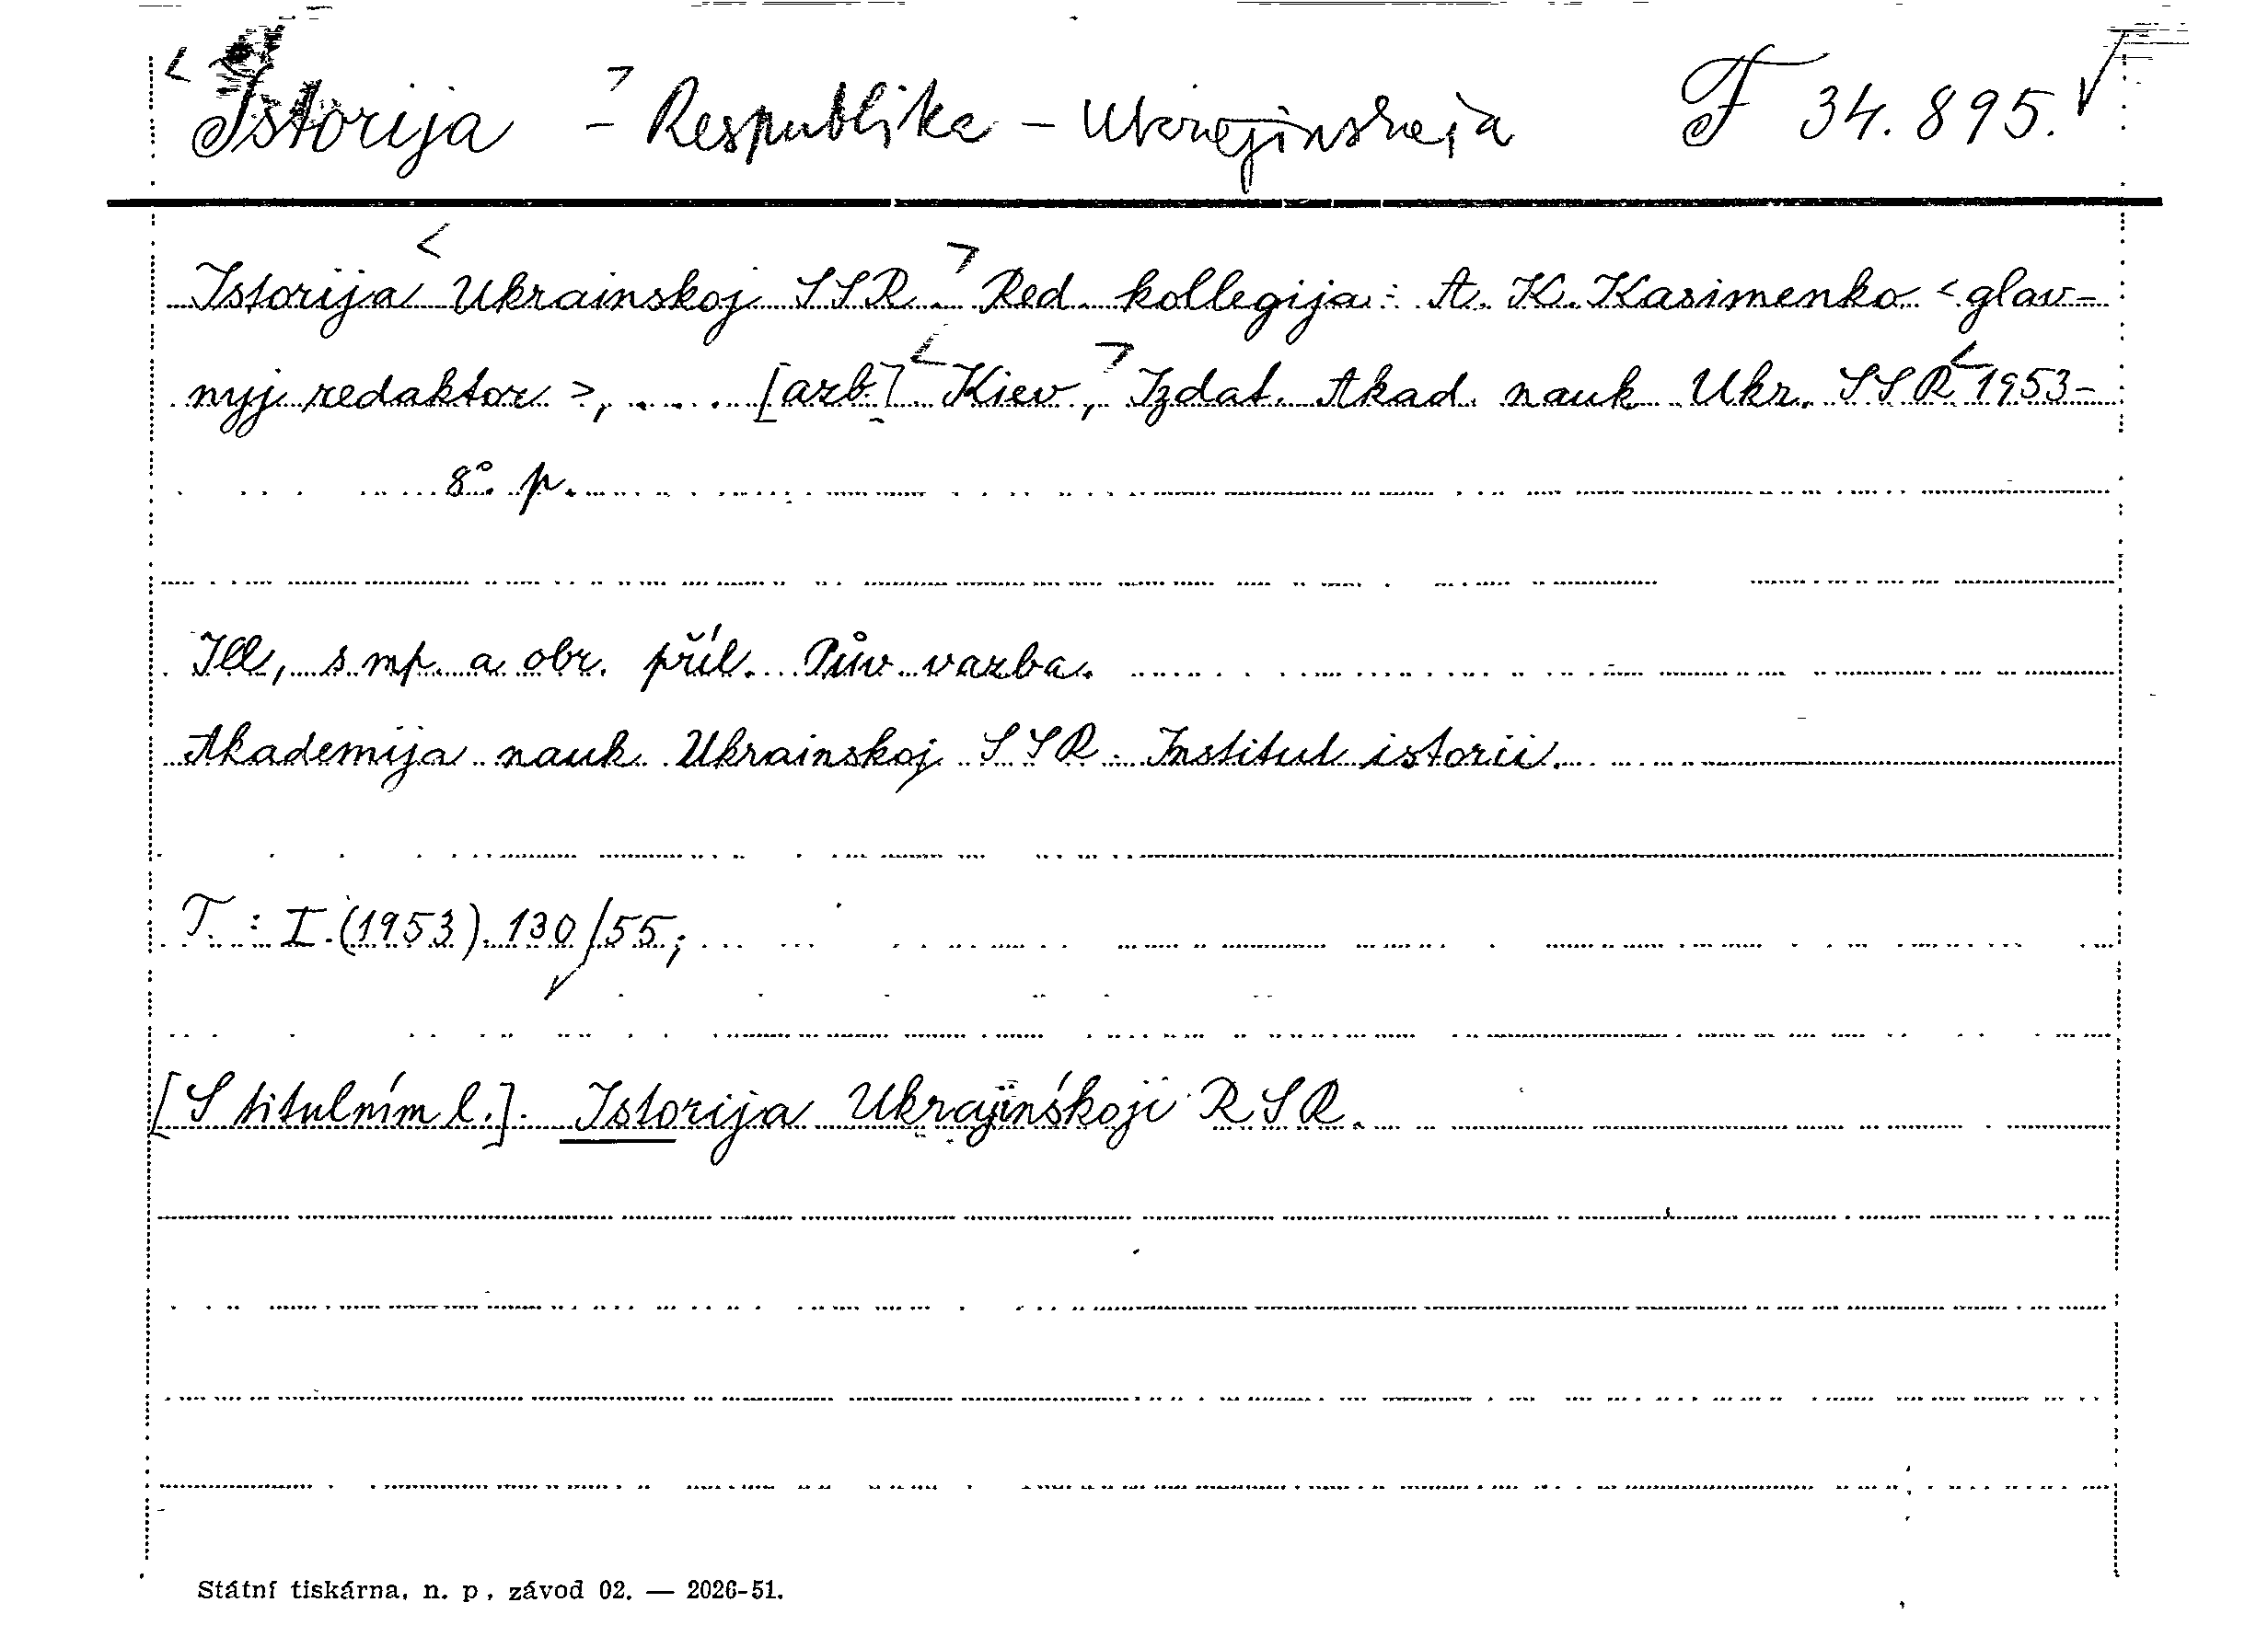 < Istorija > - Respublika - Ukrajinskaja F 34.895.
Istorija < Ukrainskoj SSR. > Red. kollegija: A. K. Kasimenko < glav-
nyj redaktor >, . . . . [azb.] < Kiev, > Izdat. Akad. nauk Ukr. SSR < 1953-
8°. p.
Ill., s mp. a obr. příl. Pův. vazba.
Akademija nauk Ukrainskoj SSR. Institut istorii.
T. : I.(1953) 130/55;
[S titulním l.]. Istorija Ukrajinśkoji RSR.
Státní tiskárna, n. p., závod 02. — 2026-51.